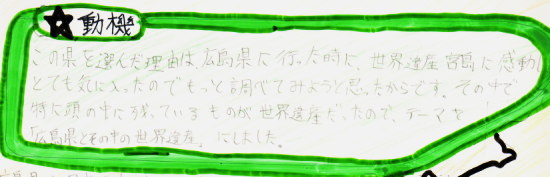 動機
この県を選んだ理由は、広島県に行った時に、世界遺産宮島に感動し
とても気に入ったのでもっと調べてみようと思ったからです。その中で
特に頭の中に残っているものが世界遺産だったので、テーマを
「広島県とその中の世界遺産」にしました。